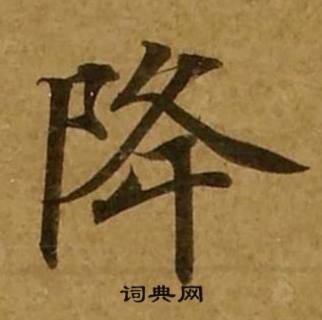 降
词典网